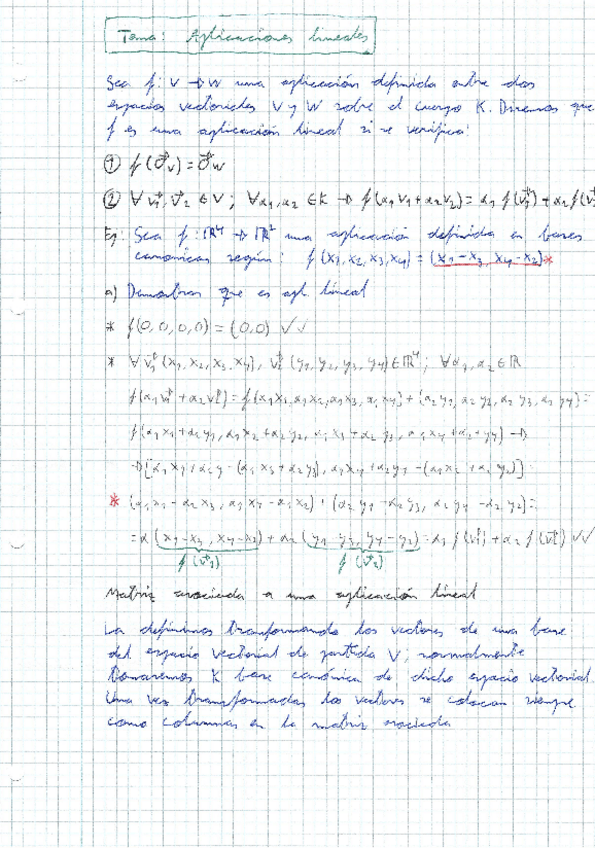 Tema: Aplicaciones lineales
Sea f: V → W una aplicación definida entre dos
espacios vectoriales V y W sobre el cuerpo K. Diremos que
f es una aplicación lineal si se verifica:
① f(0⃗v) = 0⃗w
② ∀ v⃗1, v⃗2 ∈ V; ∀α1, α2 ∈ K → f(α1 v1 + α2 v2) = α1 f(v⃗1) + α2 f(v⃗
Ej: Sea f: ℝ⁴ → ℝ² una aplicación definida en bases
canónicas según: f(x1, x2, x3, x4) = (x1 - x3, x4 - x2)*
a) Demostrar que es apl. lineal
* f(0,0,0,0) = (0,0) √√
* ∀ v⃗1 (x1, x2, x3, x4), v⃗2 (y1, y2, y3, y4) ∈ ℝ⁴; ∀α1, α2 ∈ ℝ
f(α1 v⃗1 + α2 v⃗2) = f(α1x1, α1x2, α1x3, α1x4) + (α2y1, α2y2, α2y3, α2y4) =
f(α1x1 + α2y1, α1x2 + α2y2, α1x3 + α2y3, α1x4 + α2y4) →
→ [α1x1 + α2y - (α1x3 + α2y3), α1x4 + α2y4 - (α1x2 + α2y2)] =
* (α1x1 - α2x3, α1x4 - α1x2) + (α2y1 - α2y3, α2y4 - α2y2) =
= α (x1 - x3, x4 - x2) + α2 (y1 - y3, y4 - y2) = α1 f(v⃗1) + α2 f(v⃗2) √√
f(v⃗1) f(v⃗2)
Matriz asociada a una aplicación lineal
La definimos transformando los vectores de una base
del espacio vectorial de partida V, normalmente
tomaremos K base canónica de dicho espacio vectorial.
Una vez transformados los vectores se colocan siempre
como columnas en la matriz asociada